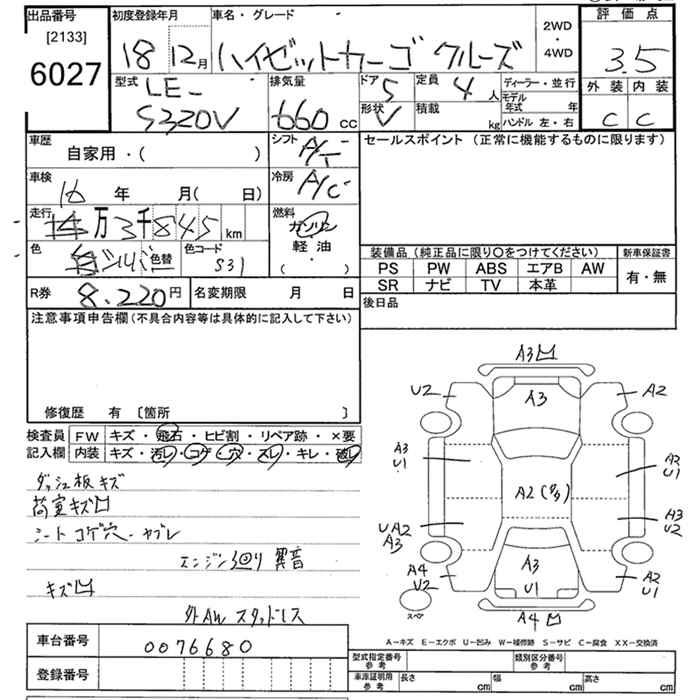 出品番号
[2133]
6027
初度登録年月
18 12月
車名・グレード
ハイゼットカーゴ クルーズ
2WD
・
4WD
評価点
3.5
外装 内装
C C
型式
LE-
S320V
排気量
660 CC
ドア 5
形状 V
定員 4 人
積載 kg
ディーラー・並行
モデル年式 年
ハンドル 左・右
車歴
自家用・( )
シフト A/T
車検
年 月( 日)
冷房 A/C
走行
万3千845 km
燃料
ガソリン
軽油
( ・ )
色
シルバー 色替
色コード
S31
セールスポイント (正常に機能するものに限ります)
装備品 (純正品に限り○をつけてください)
新車保証書
PS PW ABS エアB AW
有・無
SR ナビ TV 本革
R券 8,220円 名変期限 月 日
後日品
注意事項申告欄(不具合内容等は具体的に記入して下さい)
修復歴 有 [箇所 ]
検査員
記入欄
FW キズ・飛石・ヒビ割・リペア跡・×要
内装 キズ・汚レ・コゲ・穴・スレ・キレ・破レ
ダッシュ板 キズ
荷室キズ凹
シート コゲ穴・ヤブレ
エンジン廻り 異音
キズ凹
外AW スタッドレス
A3凹
U2
A3
A2
A3
U1
A2
U1
A2(多)
UA2
A3
A3
U2
A3
U1
A4
U2
A2
U1
スペア
A4凹
A-キズ E-エクボ U-凹み W-補修跡 S-サビ C-腐食 XX-交換済
車台番号
0076680
登録番号
型式指定番号
参考
類別区分番号
参考
車庫証明用
参考
長さ cm 幅 cm 高さ cm